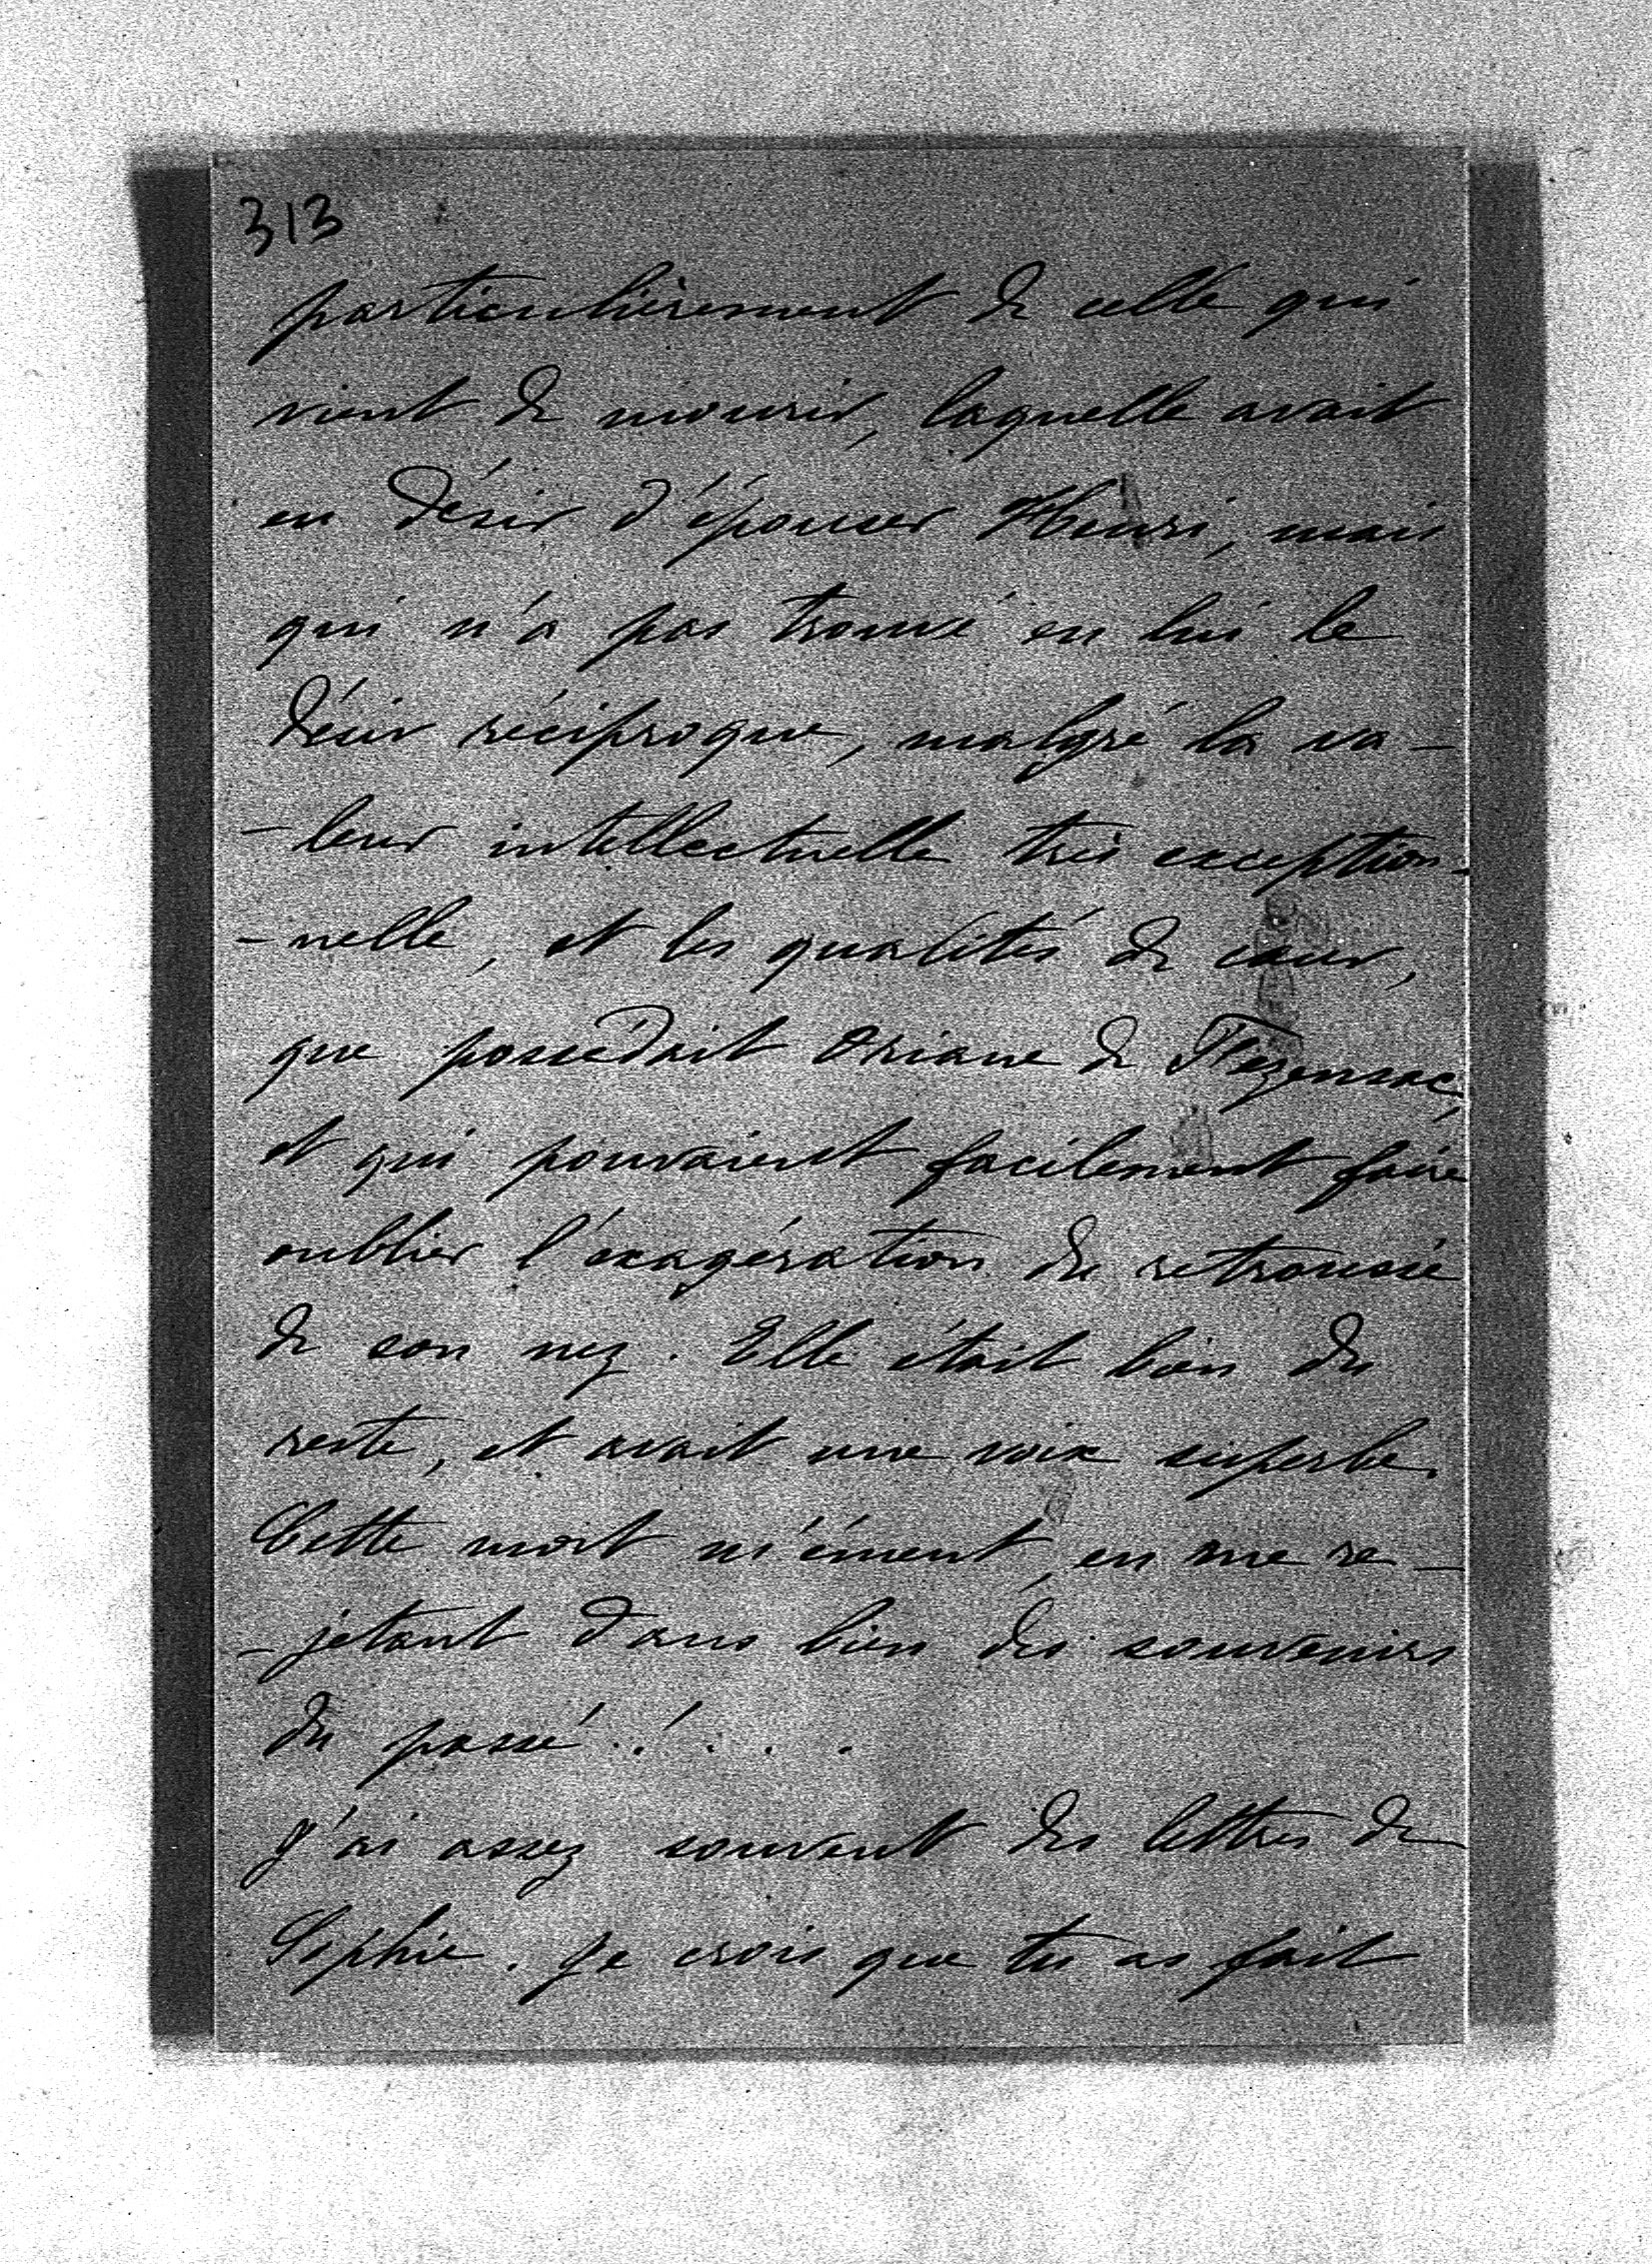 313
particulièrement de celle qui
vient de mourir, laquelle avait
eu désir d'épouser Henri, mais
qui n'a pas trouvé en lui le
désir réciproque, malgré la va-
-leur intellectuelle très exception-
-nelle, et les qualités de cœur,
que possédait Oriane de Fezensac,
et qui pouvaient facilement faire
oublier l'exagération du retroussé
de son nez. Elle était bien du
reste, et avait une voix superbe.
Cette mort m'émeut, en me re-
-jetant dans bien des souvenirs
du passé ! . . .
J'ai assez souvent des lettres de
Sophie. Je crois que tu as fait